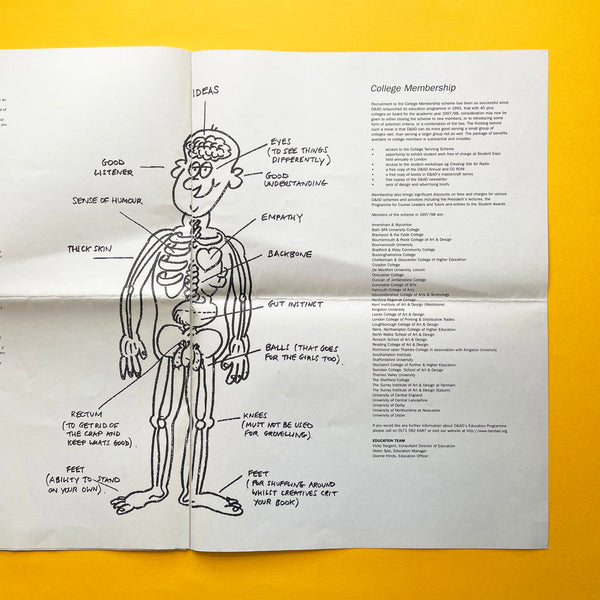 IDEAS
EYES
(TO SEE THINGS
DIFFERENTLY)
GOOD
LISTENER
GOOD
UNDERSTANDING
SENSE OF HUMOUR
EMPATHY
THICK SKIN
BACKBONE
GUT INSTINCT
BALLS (THAT GOES
FOR THE GIRLS TOO).
RECTUM
(TO GET RID OF
THE CRAP AND
KEEP WHATS GOOD).
KNEES
(MUST NOT BE USED
FOR GROVELLING).
FEET
(ABILITY TO STAND
ON YOUR OWN).
FEET
(FOR SHUFFLING AROUND
WHILST CREATIVES CRIT
YOUR BOOK)
College Membership
Recruitment to the College Membership scheme has been so successful since
D&AD relaunched its education programme in 1995, that with 40 plus
colleges on board for the academic year 1997/98, consideration may now be
given to either closing the scheme to new members, or to introducing some
form of selection criteria, or a combination of the two. The thinking behind
such a move is that D&AD can do more good serving a small group of
colleges well, than serving a larger group not so well. The package of benefits
available to college members is substantial and includes:
• access to the College Tanning Scheme
• opportunity to exhibit student work free of charge at Student Expo
held annually in London
• access to the student workshops eg Creating Ads for Radio
• a free copy of the D&AD Annual and CD ROM
• a free copy of books in D&AD's mastercraft series
• free copies of the D&AD newsletter
• sets of design and advertising briefs
Membership also brings significant discounts on fees and charges for various
D&AD schemes and activities including the President's lectures, the
Programme for Course Leaders and Tutors and entries to the Student Awards.
Members of the scheme in 1997/98 are:
Amersham & Wycombe
Bath SPA University College
Blackpool & the Fylde College
Bournemouth & Poole College of Art & Design
Bournemouth University
Bradford & Ilkley Community College
Buckinghamshire College
Cheltenham & Gloucester College of Higher Education
Croydon College
De Montfort University, Lincoln
Doncaster College
Duncan of Jordanstone College
Dunstable College of Arts
Falmouth College of Arts
Gloucestershire College of Arts & Technology
Hertford Regional College
Kent Institute of Art & Design (Maidstone)
Kingston University
Leeds College of Art & Design
London College of Printing & Distributive Trades
Loughborough College of Art & Design
Nene, Northampton College of Higher Education
North Wales School of Art & Design
Norwich School of Art & Design
Reading College of Art & Design
Richmond upon Thames College in association with Kingston University
Southampton Institute
Staffordshire University
Stockport College of Further & Higher Education
Swindon College, School of Art & Design
Thames Valley University
The Sheffield College
The Surrey Institute of Art & Design at Farnham
The Surrey Institute of Art & Design (Epsom)
University of Central England
University of Central Lancashire
University of Derby
University of Northumbria at Newcastle
University of Ulster
If you would like any further information about D&AD's Education Programme
please call on 0171 582 6487 or visit our website at http://www.dandad.org
EDUCATION TEAM
Vicky Sargent, Consultant Director of Education
Helen Tyas, Education Manager
Dionne Hinds, Education Officer